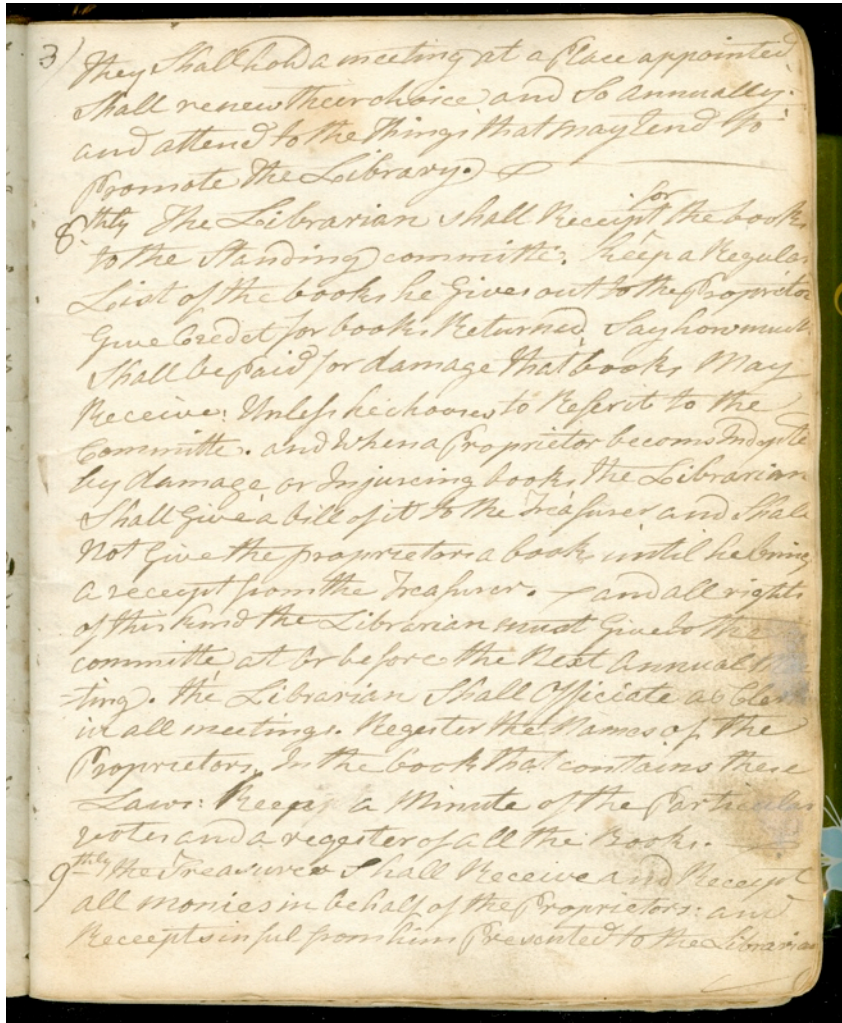 3) they Shall hold a meeting at a Place appointed
Shall renew their choice and So annually.
and attend to the Things that may tend to
Promote the Library.
8thly The Librarian Shall Receipt for the books
to the Standing committe. keep a Regular
List of the books he Gives out to the Proprietor
Give Credet for books Returned, Say how much
Shall be Paid for damage that books May
Receive. Unless he chooses to Refer it to the
Committe. and When a Proprietor becoms Indepted
by damage or Injureing books the Librarian
Shall Give a bill of it to the Treasurer and Shall
Not Give the proprietors a book until he bring
a receipt from the Treasurer. and all rights
of this kind the Librarian must Give to the
committe at or before the Next Annual Mee
-ting. the Librarian Shall Officiate as Clerk
in all meetings. Regester the Names of the
Proprietors, In the book that contains these
Laws: Keep a Minute of the Particular
votes and a regester of all the Books.
9thly the Treasurer Shall Receive and Receipt
all monies in behalf of the Proprietors: and
Receepts in ful from him Presented to the Librarian